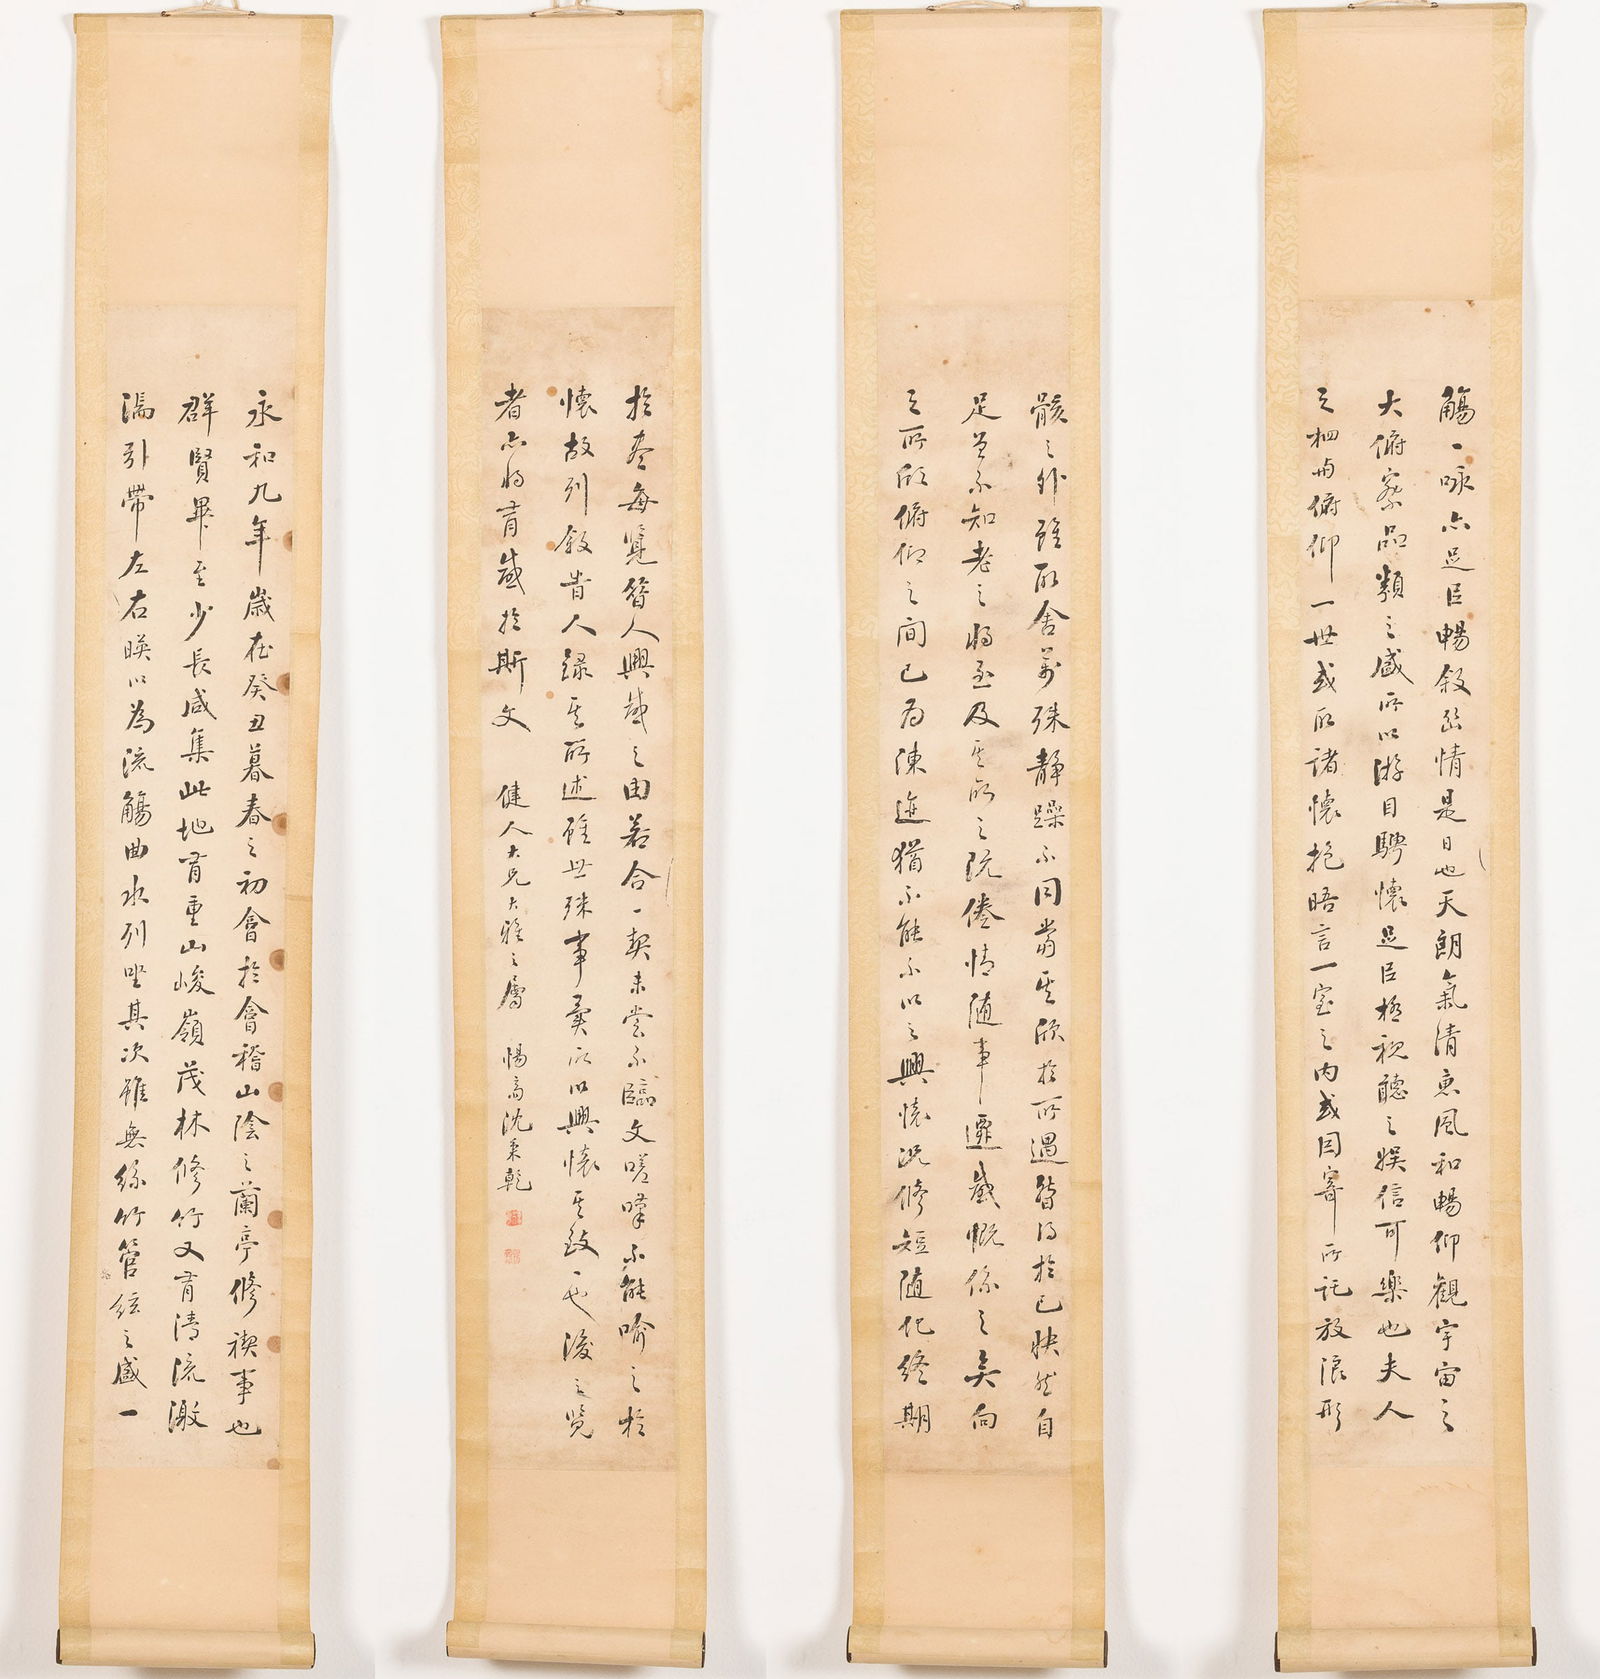 永和九年歲在癸丑暮春之初會於會稽山陰之蘭亭修禊事也
群賢畢至少長咸集此地有重山峻嶺茂林修竹又有清流激
湍引帶左右暎以為流觴曲水列坐其次雖無絲竹管絃之盛一
觴一咏亦足以暢敘幽情是日也天朗氣清惠風和暢仰觀宇宙之
大俯察品類之盛所以游目騁懷足以極視聽之娛信可樂也夫人
之相與俯仰一世或取諸懷抱晤言一室之內或因寄所託放浪形
骸之外雖取舍萬殊靜躁不同當其欣於所遇暫得於己快然自
足曾不知老之將至及其所之既倦情隨事遷感慨係之矣向
之所欣俯仰之間已為陳迹猶不能不以之興懷況修短隨化終期
於盡每覽昔人興感之由若合一契未嘗不臨文嗟悼不能喻之於
懷故列敘昔人錄其所述雖世殊事異所以興懷其致一也後之覽
者亦將有感於斯文 健人大兄大雅之屬 沈秉乾